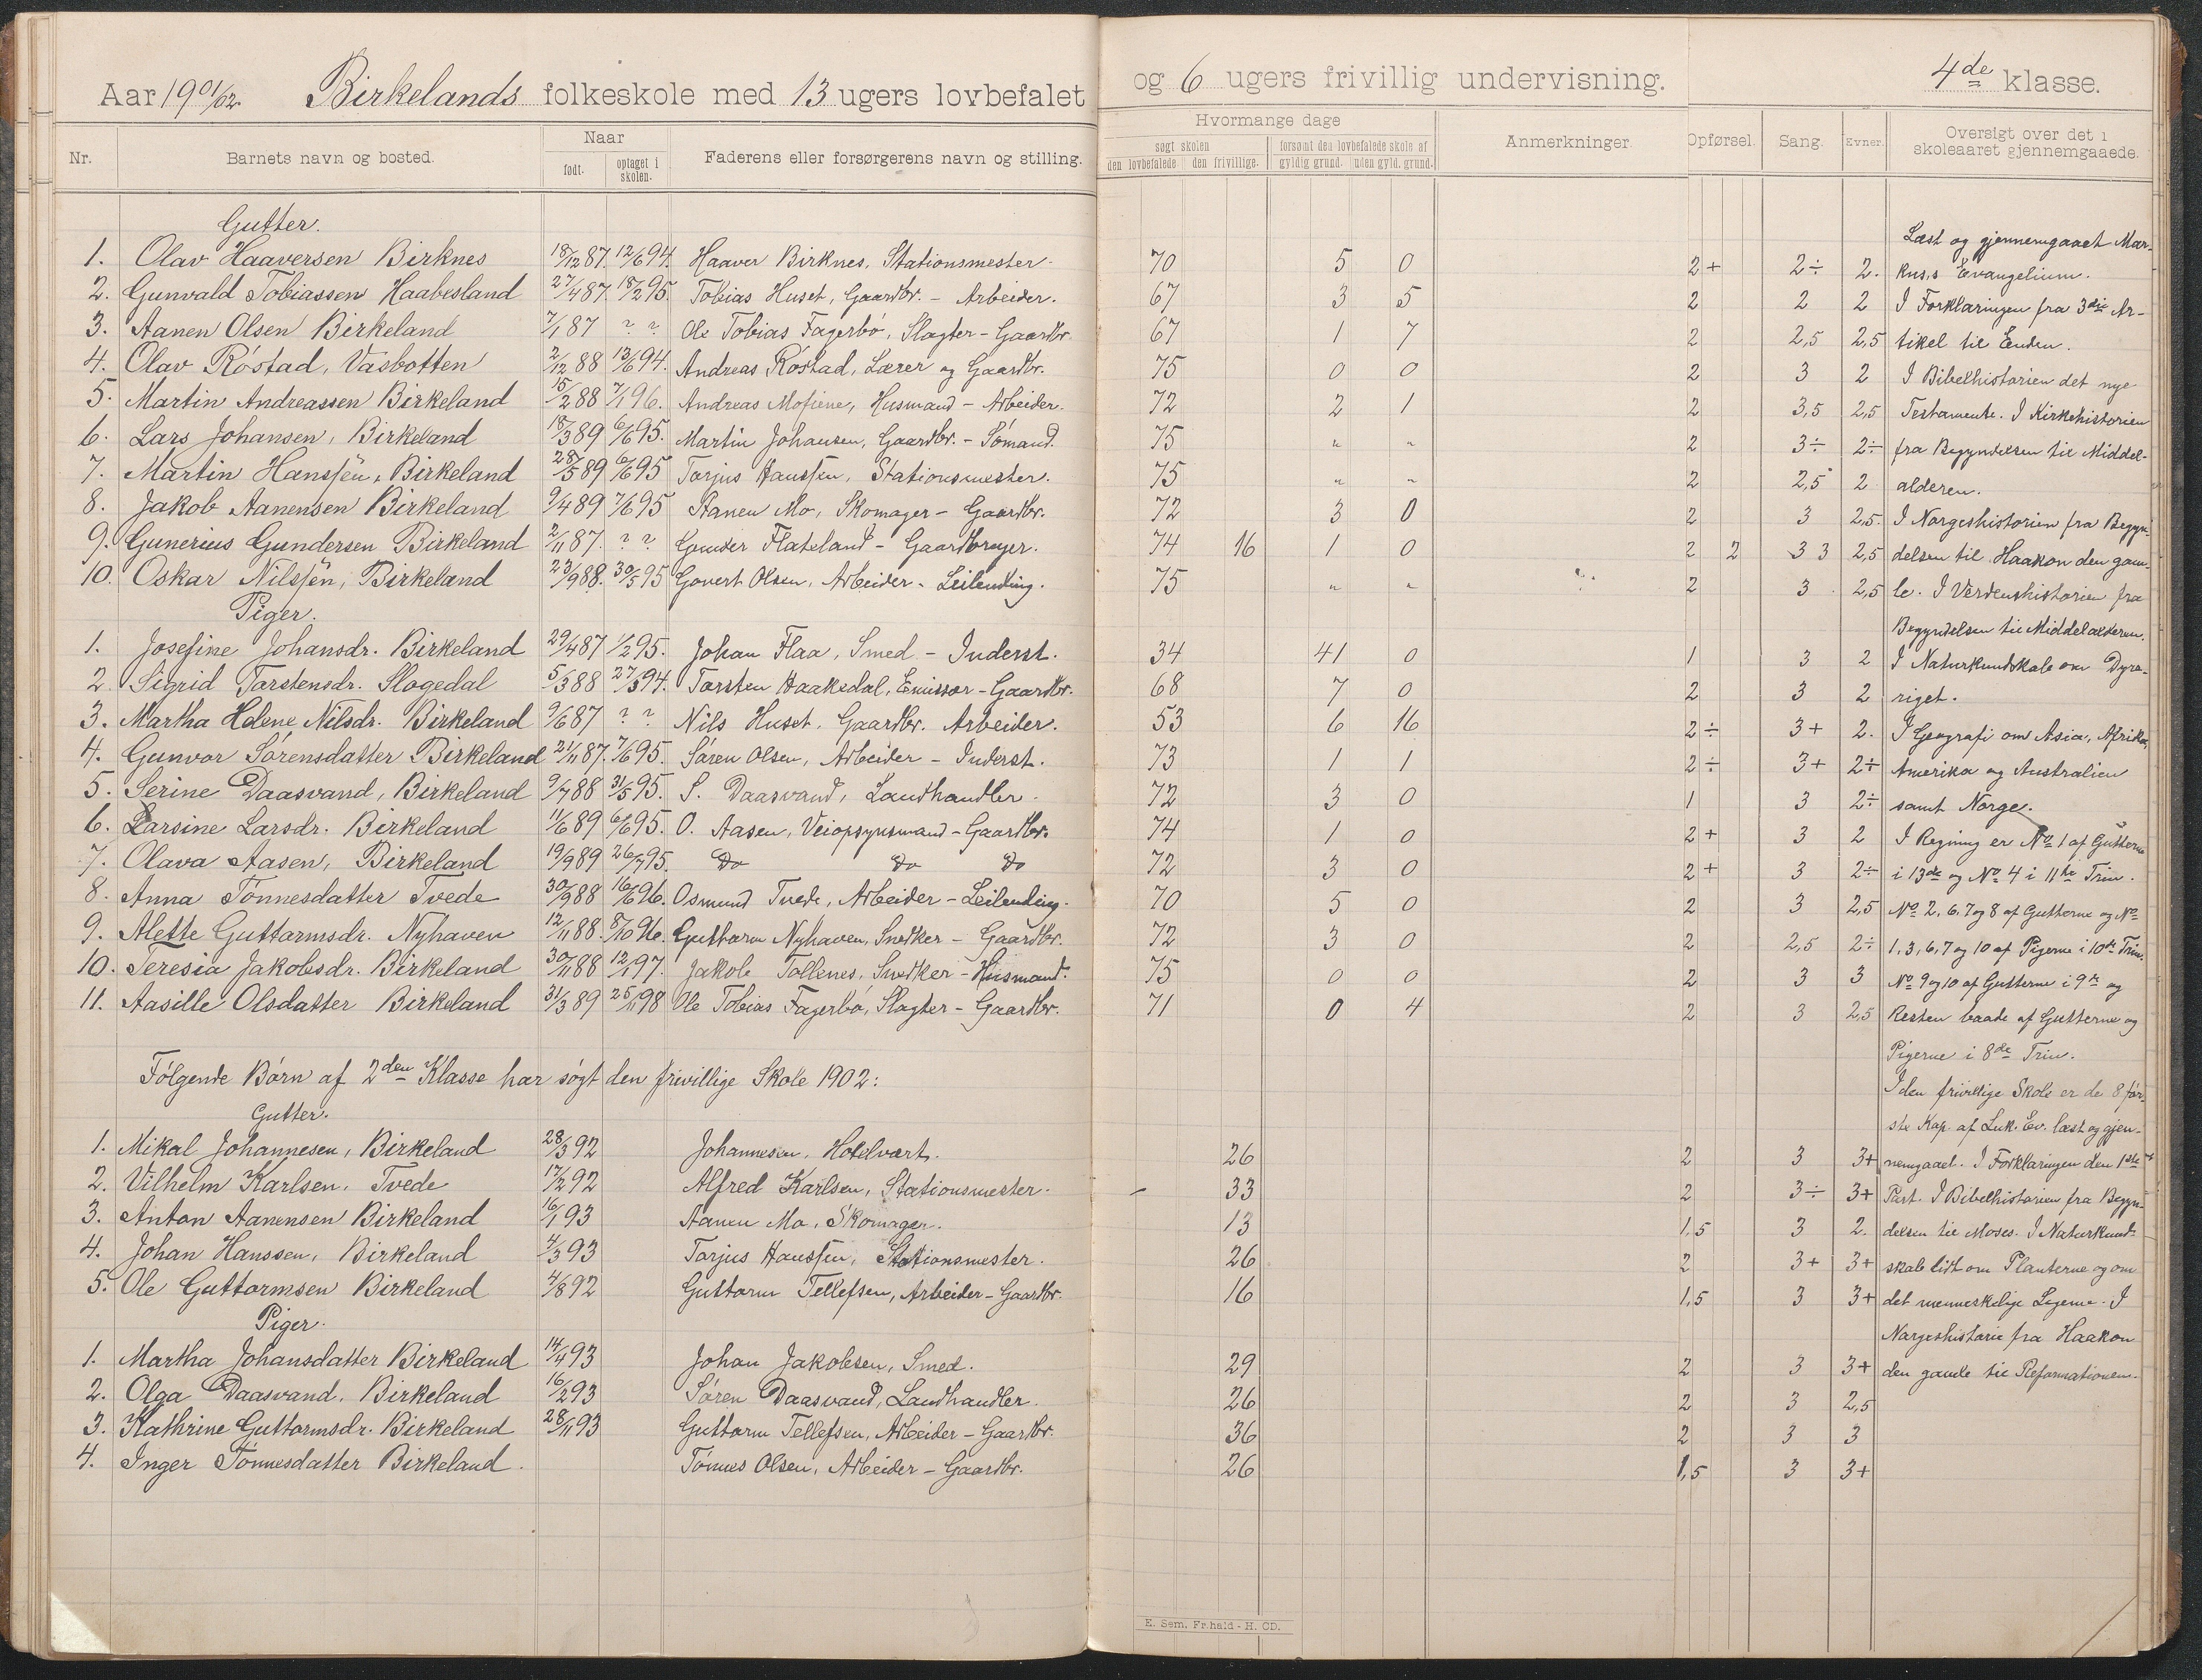 Aar 1901/02. Birkelands folkeskole med 13 ugers lovbefalet og 6 ugers frivillig undervisning. 4de klasse.
Nr. Barnets navn og bosted. Naar født. optaget i skolen. Faderens eller forsørgerens navn og stilling. Hvormange dage søgt skolen den lovbefalede den frivillige. forsømt den lovbefalede skole af gyldig grund. uden gyld. grund. Anmerkninger. Opførsel. Sang. Evner. Oversigt over det i skoleaaret gjennemgaaede.
Gutter.
1. Olav Haaversen Birknes 18/12 87. 12/6 94. Haaver Birknes, Stationsmester. 70 5 0 2+ 2÷ 2.
2. Gunvald Tobiassen Haabesland 27/4 87. 18/2 95. Tobias Huset, Gaardbr. - Arbeider. 67 3 5 2 2 2
3. Aanen Olsen Birkeland 7/1 87 ? ? Ole Tobias Fagerbø, Slagter - Gaardbr. 67 1 7 2 2,5 2,5
4. Olav Røstad, Vasbotten 2/12 88 13/6 94. Andreas Røstad, Lærer og Gaardbr. 75 0 0 2 3 2
5. Martin Andreassen Birkeland 15/2 88 7/1 96. Andreas Mofiene, Husmand - Arbeider. 72 2 1 2 3,5 2,5
6. Lars Johansen, Birkeland 18/3 89 6/6 95. Martin Johansen, Gaardbr. - Sømand. 75 " " 2 3÷ 2÷
7. Martin Hanssen, Birkeland 28/5 89 6/6 95 Tarjus Hanssen, Stationsmester. 75 " " 2 2,5 2
8. Jakob Aanensen Birkeland 9/4 89 7/6 95 Aanen Mo, Skomager - Gaardbr. 72 3 0 2 3 2,5.
9. Gunerius Gundersen Birkeland 2/11 87. ? ? Gunder Flateland - Gaardbruger. 74 16 1 0 2 2 3 3 2,5
10. Oskar Nilssen, Birkeland 23/9 88. 30/5 95 Govert Olsen, Arbeider - Leilending. 75 " " 2 3 2,5
Piger.
1. Josefine Johansdr. Birkeland 29/4 87 1/2 95. Johan Flaa, Smed - Inderst. 34 41 0 1 3 2
2. Sigrid Tarstensdr. Slogedal 5/3 88 27/3 94. Tarsten Haakedal, Emissær - Gaardbr. 68 7 0 2 3 2
3. Martha Helene Nilsdr. Birkeland 9/6 87 ? ? Nils Huset, Gaardbr. Arbeider. 53 6 16 2÷ 3+ 2.
4. Gunvor Sørensdatter Birkeland 21/11 87. 7/6 95. Søren Olsen, Arbeider - Inderst. 73 1 1 2÷ 3+ 2÷
5. Serine Daasvand, Birkeland 9/7 88 31/5 95. S. Daasvand, Landhandler. 72 3 0 1 3 2÷
6. Larsine Larsdr. Birkeland 11/6 89 6/6 95. O. Aasen, Veiopsynsmand - Gaardbr. 74 1 0 2+ 3 2
7. Olava Aasen, Birkeland 19/9 89 26/7 95. Do Do Do 72 3 0 2+ 3 2÷
8. Anna Tønnesdatter Tvede 30/9 88 16/6 96. Osmund Tvede, Arbeider - Leilending. 70 5 0 2 3 2,5
9. Alette Guttormsdr. Nyhaven 12/11 88. 8/10 96. Guttorm Nyhaven, Snedker - Gaardbr. 72 3 0 2 2,5 2÷
10. Teresia Jakobsdr. Birkeland 30/11 88 12/1 97. Jakob Tollenes, Snedker - Husmand. 75 0 0 2 3 3
11. Aasille Olsdatter Birkeland 31/3 89 25/11 98 Ole Tobias Fagerbø, Slagter - Gaardbr. 71 0 4 2 3 2,5
Følgende Børn af 2den Klasse har søgt den frivillige Skole 1902:
Gutter.
1. Mikal Johannesen, Birkeland 28/3 92 Johannesen, Hotelvært. 26 2 3 3+
2. Vilhelm Karlsen, Tvede 17/2 92 Alfred Karlsen, Stationsmester. 33 2 3÷ 3+
3. Anton Aanensen Birkeland 16/1 93 Aanen Mo, Skomager. 13 1,5 3 2.
4. Johan Hanssen, Birkeland 4/3 93 Tarjus Hanssen, Stationsmester. 26 2 3+ 3+
5. Ole Guttormsen Birkeland 4/8 92 Guttorm Tellefsen, Arbeider - Gaardbr. 16 1,5 3 3+
Piger.
1. Martha Johansdatter Birkeland 14/4 93 Johan Jakobsen, Smed. 29 2 3 3+
2. Olga Daasvand, Birkeland 16/2 93 Søren Daasvand, Landhandler. 26 2 3 2,5
3. Kathrine Guttormsdr. Birkeland 28/11 93 Guttorm Tellefsen, Arbeider - Gaardbr. 36 2 3 3
4. Inger Tønnesdatter Birkeland. Tønnes Olsen, Arbeider - Gaardbr. 26 1,5 3 3+
Læst og gjennemgaaet Mar-
kus's Evangelium.
I Forklaringen fra 3die Ar-
tikel til Enden.
I Bibelhistorien det nye
Testamente. I Kirkehistorien
fra Begyndelsen til Middel-
alderen.
I Norgeshistorien fra Begyn-
delsen til Haakon den gam-
le. I Verdenshistorien fra
Begyndelsen til Middelalderen.
I Naturkundskab om Dyre-
riget.
I Geografi om Asia, Afrika,
Amerika og Australien
samt Norge.
I Regning er No 1 af Gutterne
i 13de og No 4 i 11te Trin.
No 2, 6, 7 og 8 af Gutterne og No
1, 3, 6, 7 og 10 af Pigerne i 10de Trin.
No 9 og 10 af Gutterne i 9de og
Resten baade af Gutterne og
Pigerne i 8de Trin.
I den frivillige Skole er de 8 før-
ste Kap. af Luk. Ev. læst og gjen-
nemgaaet. I Forklaringen den 1ste
Part. I Bibelhistorien fra Begyn-
delsen til Moses. I Naturkund-
skab lidt om Planterne og om
det menneskelige Legeme. I
Norgeshistorie fra Haakon
den gamle til Reformationen.
E. Sem, Fr.hald - H. CD.